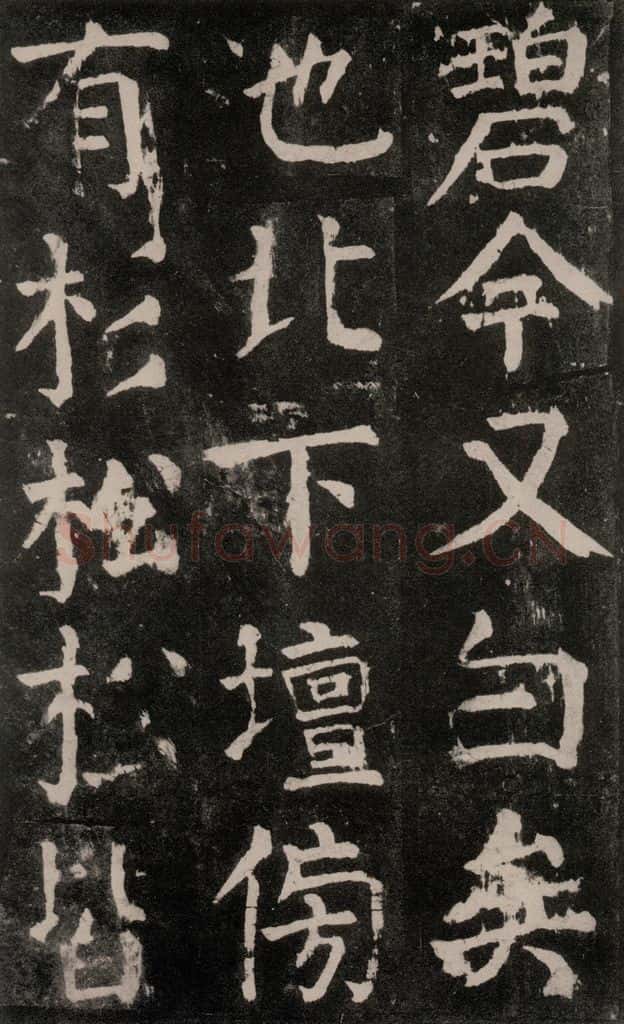 碧今又白矣
池北下壇傍
有杉松松皆
Shufawang.CN